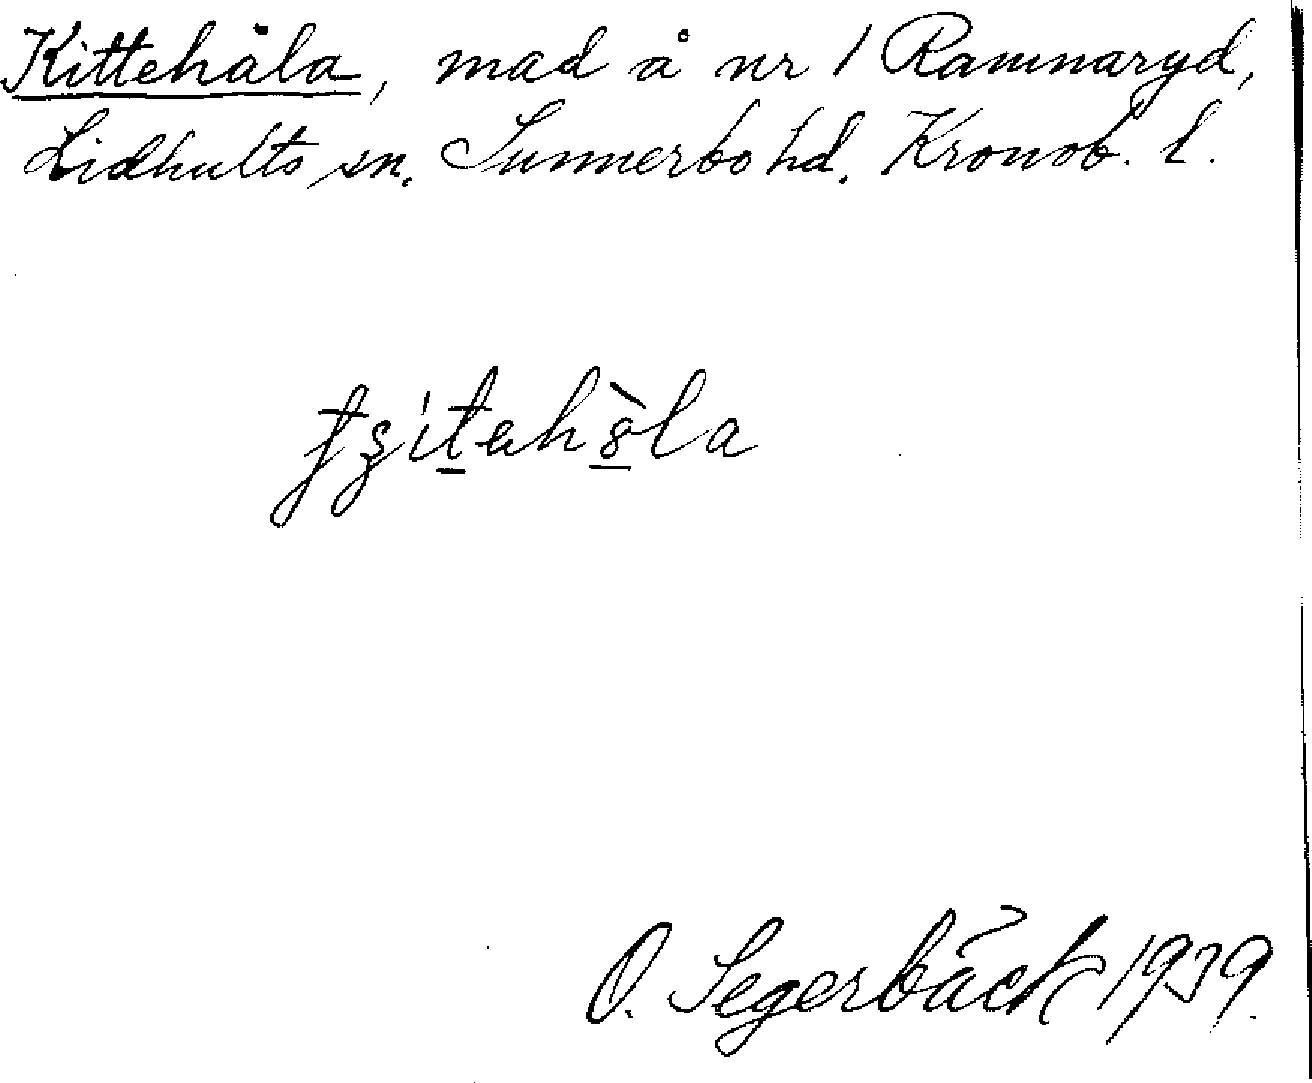 Kittehåla, mad å nr 1 Ramnaryd,
Lidhults sn. Sunnerbo hd. Kronob. l.
O. Segerbäck 1939.